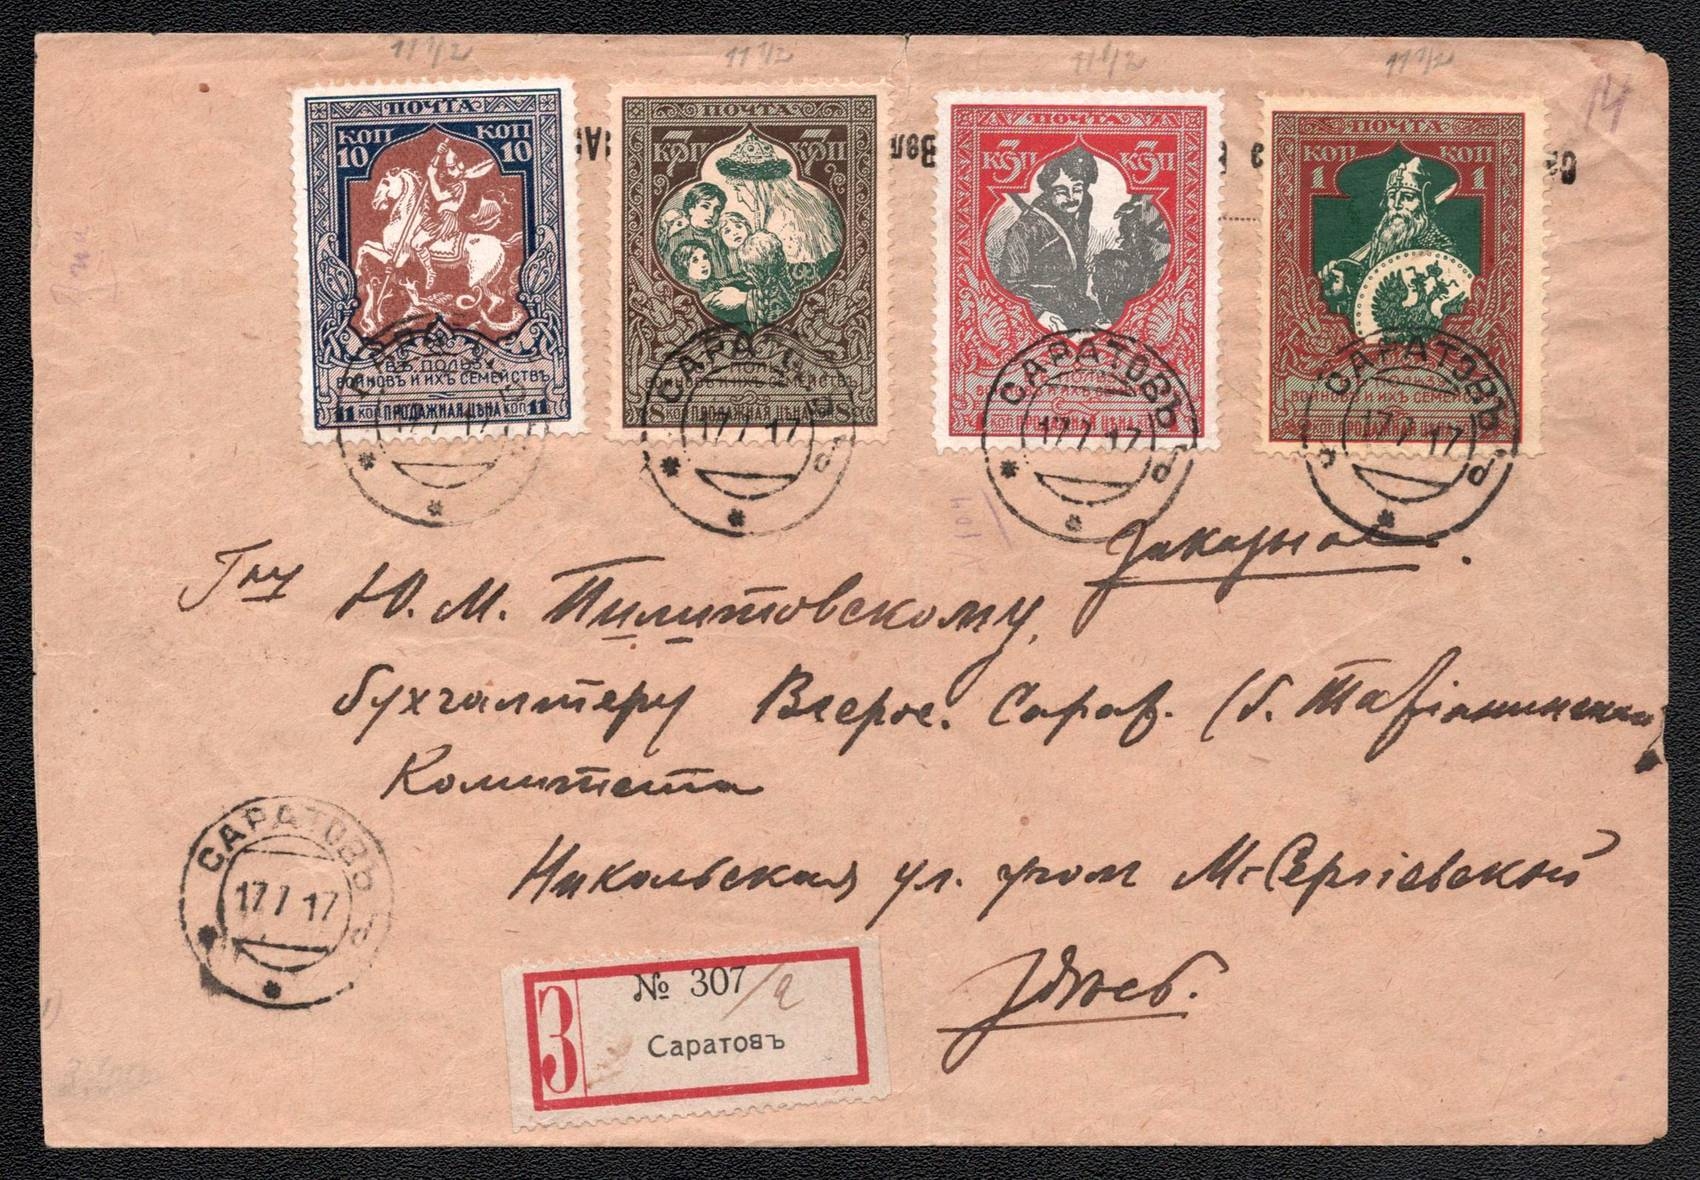 11 1/2
11 1/2
11 1/2
11 1/2
14
ПОЧТА
КОП 10 КОП 10
ВЪ ПОЛЬЗУ
ВОИНОВЪ И ИХЪ СЕМЕЙСТВЪ
11 КОП ПРОДАЖНАЯ ЦѢНА КОП 11
ПОЧТА
7 КОП 7 КОП
ВОИНОВЪ И ИХЪ СЕМЕЙСТВЪ
8 КОП ПРОДАЖНАЯ ЦѢНА КОП 8
ПОЧТА
3 КОП 3 КОП
КОП ПРОДАЖНАЯ ЦѢНА
ПОЧТА
КОП 1 КОП 1
ВОИНОВЪ И ИХЪ СЕМЕЙСТВЪ
КОП ПРОДАЖНАЯ ЦѢНА
САРАТОВЪ
17 7 17
САРАТОВЪ
17 7 17
САРАТОВЪ
17 7 17
САРАТОВЪ
17 7 17
Заказное.
Гну Ю. М. Пилитовскому,
бухгалтеру Всерос. Сараѳ. (б. Татіанинскаго)
Комитета
Никольская ул. угол М-Сергіевской
Здѣсь.
САРАТОВЪ
17 7 17
З
№ 307/а
Саратовъ